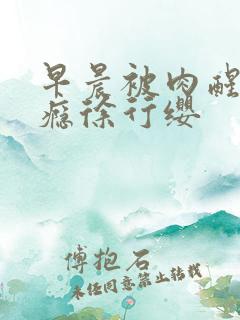 早晨被肉醒
瘾徐行缨
傅抱石
未经同意禁止转载